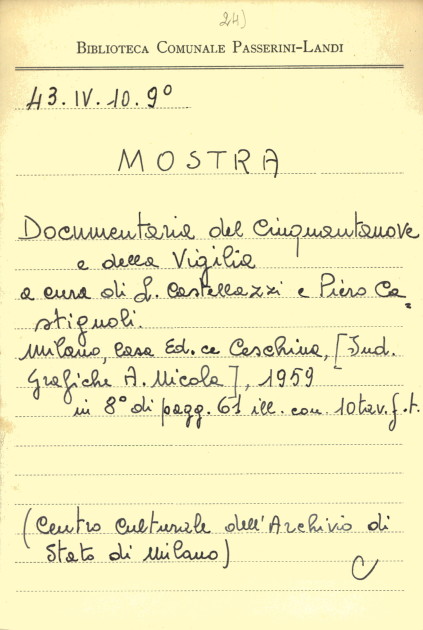 24)
BIBLIOTECA COMUNALE PASSERINI-LANDI
43.IV.10.9°
MOSTRA
Documentaria del Cinquantanove
e della Vigilia
a cura di L. Castellazzi e Piero Ca=
stignoli.
Milano, Casa Ed.ce Ceschina, [Ind.
Grafiche A. Nicola], 1959
in 8° di pagg. 61 ill. con 10 tav. f.t.
(Centro Culturale dell'Archivio di
Stato di Milano)
C